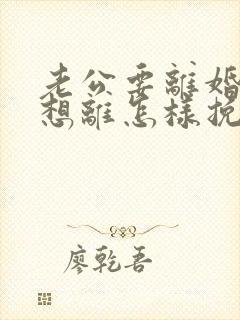 老公要離婚
想離怎樣挽
廖乾吾